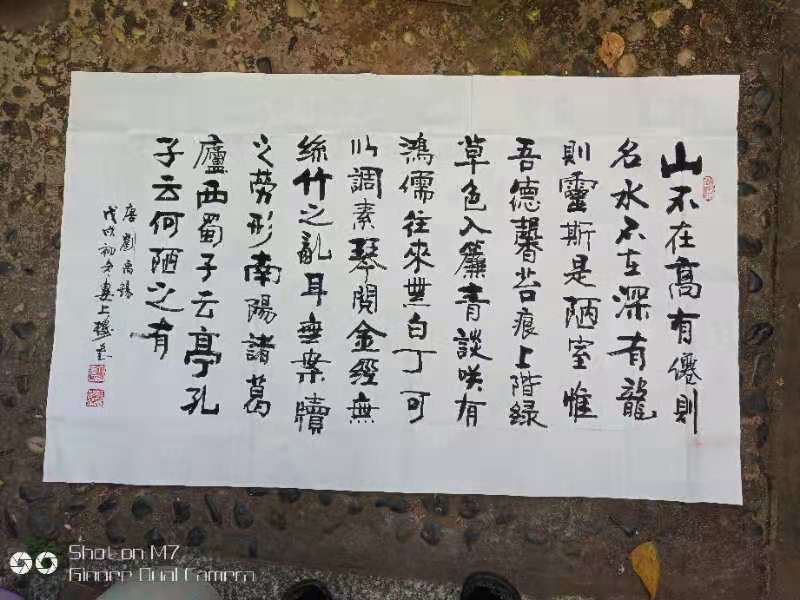 山不在高有僊則
名水不在深有龍
則靈斯是陋室惟
吾德馨苔痕上階緑
草色入簾青談咲有
鴻儒往來無白丁可
以調素琴閱金經無
絲竹之亂耳無案牘
之勞形南陽諸葛
廬西蜀子云亭孔
子云何陋之有
唐劉禹錫
戊戌初冬
Shot on M7
Gionee Dual Camera